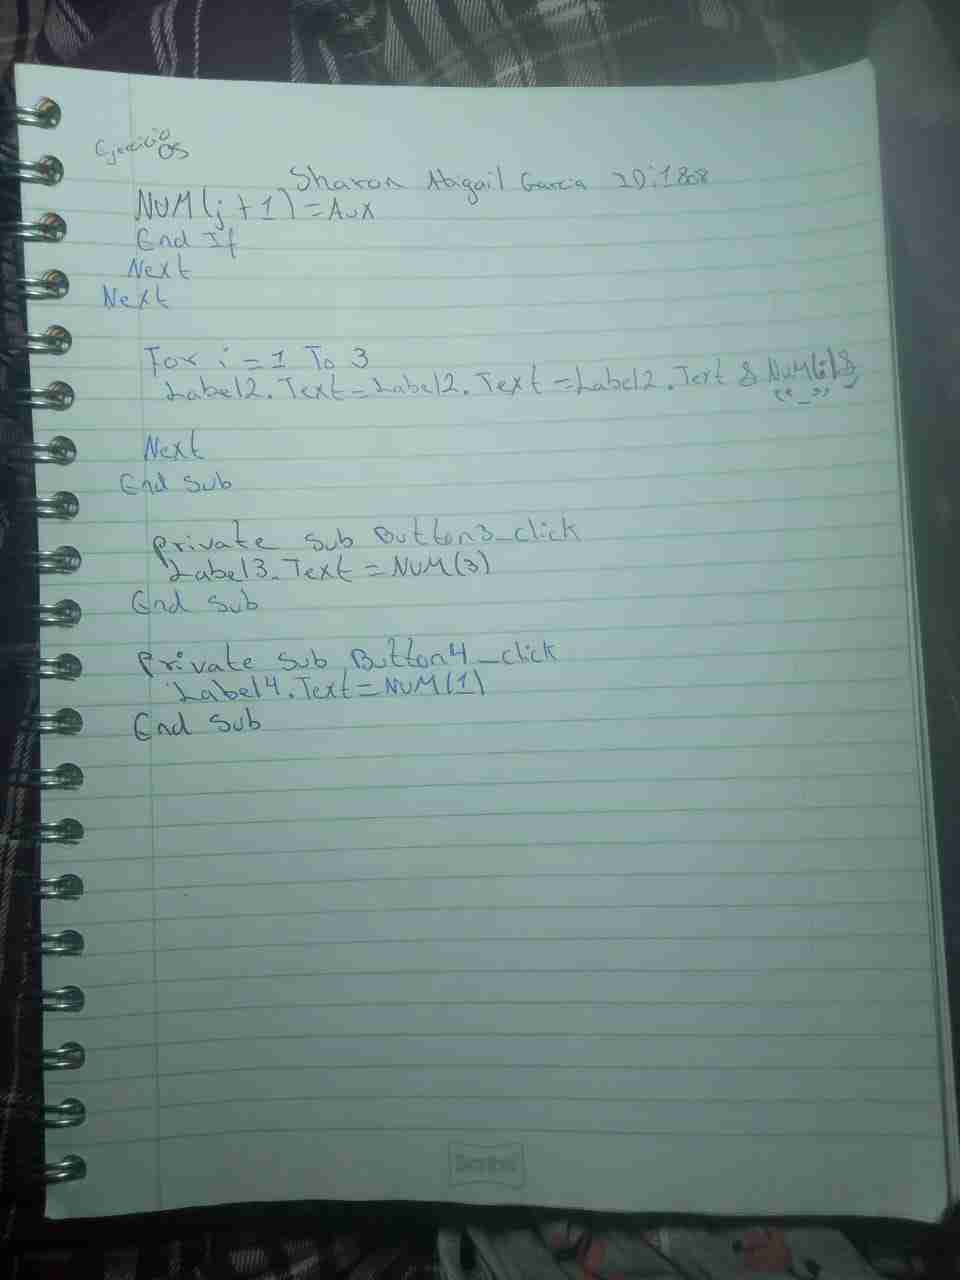 Ejercicio 05
Sharon Abigail Garcia ID:1808
NUM(j+1)=Aux
End If
Next
Next
For i=1 To 3
Label2.Text=Label2.Text=Label2.Text & NUM(i)&
"_"
Next
End Sub
private sub Button3_click
Label3.Text=NUM(3)
End sub
Private sub Button4_click
Label4.Text=NUM(1)
End Sub